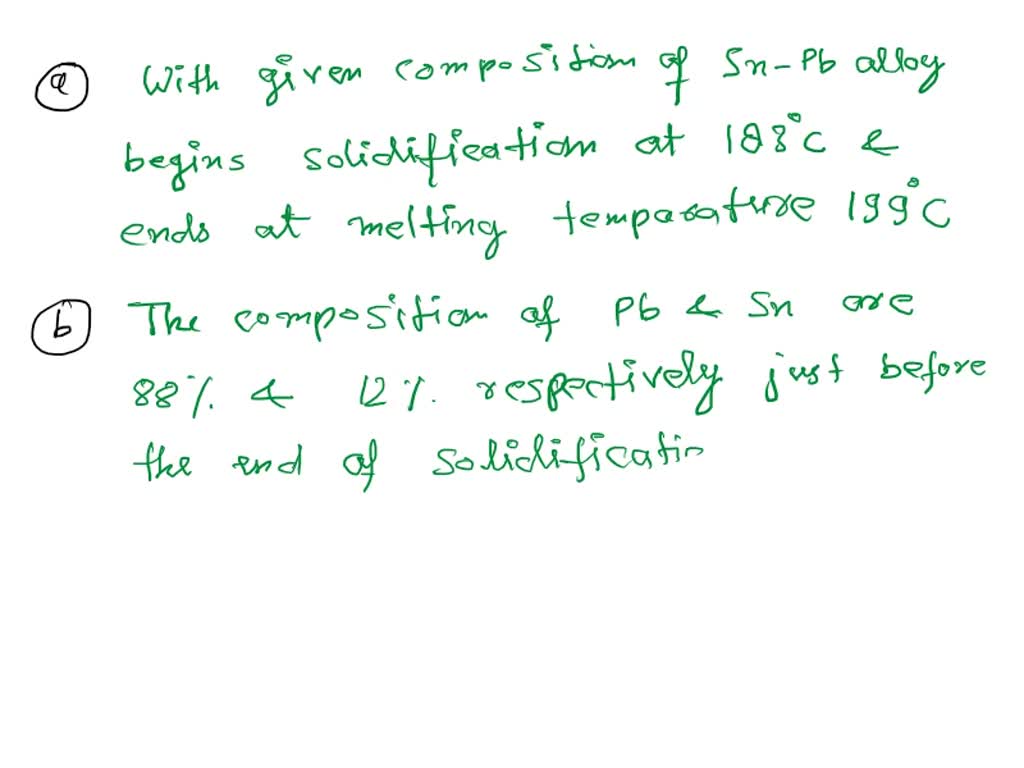 a With given composition of Sn-Pb alloy
begins solidification at 183°C &
ends at melting temparature 199°C
b The composition of Pb & Sn are
88% & 12% respectively just before
the end of solidificatin